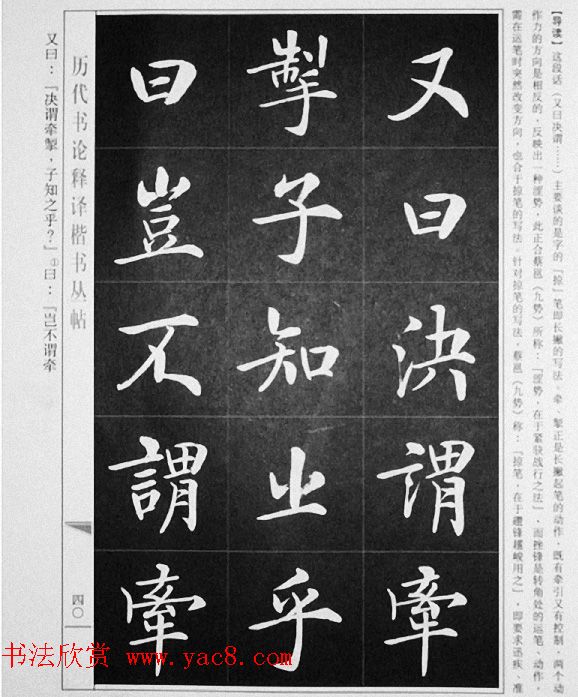 【导读】这段话（又曰决谓……）主要谈的是字的「掠」笔即长撇的写法。牵、掣正是长撇起笔的动作，既有牵引又有控制，两个动
作力的方向是相反的，反映出一种涩势，此正合蔡邕《九势》所称：「涩势，在于紧駃战行之法」，而挫锋是转角处的运笔，动作
需在运笔时突然改变方向，也合于掠笔的写法。针对掠笔的写法，蔡邕《九势》称：「掠笔，在于趱锋越峻用之」，即要求迅疾、准
又曰決謂牽
掣子知之乎
曰豈不謂牽
历代书论释译楷书丛帖
四〇
又曰：「决谓牵掣，子知之乎？」①曰：「岂不谓牵
书法欣赏 www.yac8.com